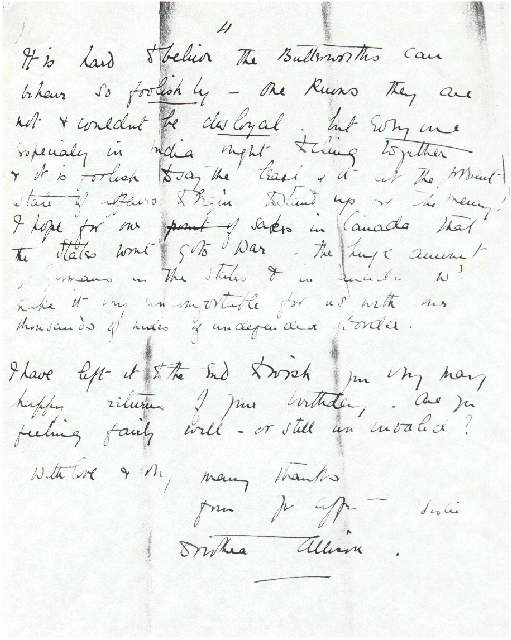 4
It is hard to believe the Butterworths can
behave so foolishly – one knows they are
not & couldn't be disloyal. but everyone
especially in India ought to cling together
& it is foolish to say the least of it at the present
state of affairs to begin to stand up for the enemy!
I hope for our point of sakes in Canada that
the States won't go to war – the huge amount
of Germans in the states & in
make it very uncomfortable for us with our
thousands of miles of undefended border.
I have left it to the end to wish you very many
happy returns of your birthday, – are you
feeling fairly well – or still an invalid?
With love & oh, many thanks
from yr affte sister
Dorothea Allison.